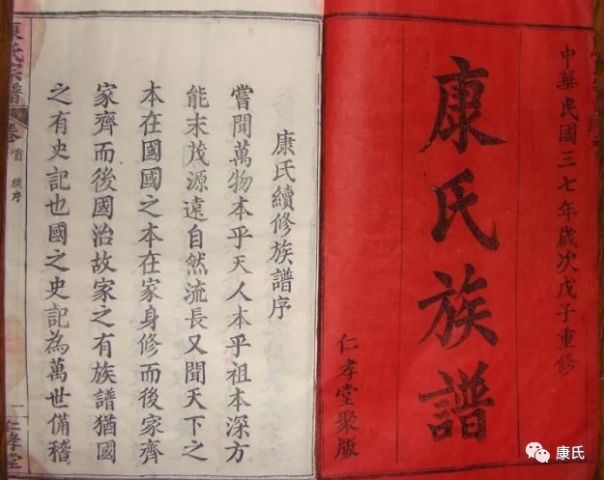 中華民國三七年歲次戊子重修
康氏族譜
仁孝堂聚版
康氏續修族譜序
嘗聞萬物本乎天人本乎祖本深方
能末茂源遠自然流長又聞天下之
本在國國之本在家身修而後家齊
家齊而後國治故家之有族譜猶國
之有史記也國之史記為萬世備稽
康氏宗譜
卷首
序
一
仁孝堂
康氏